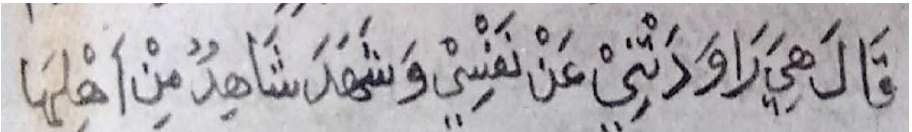 قَالَ هِيَ رَاوَدَتْنِيْ عَنْ نَفْسِيْ وَشَهَدَ شَاهِدٌ مِنْ اَهْلِهَا